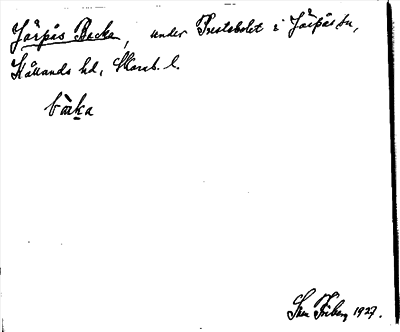 Järpås Backa, under Prestebolet i Järpås sn,
Kållands hd, Skarab. l.
bàka
Sven Friberg 1927.